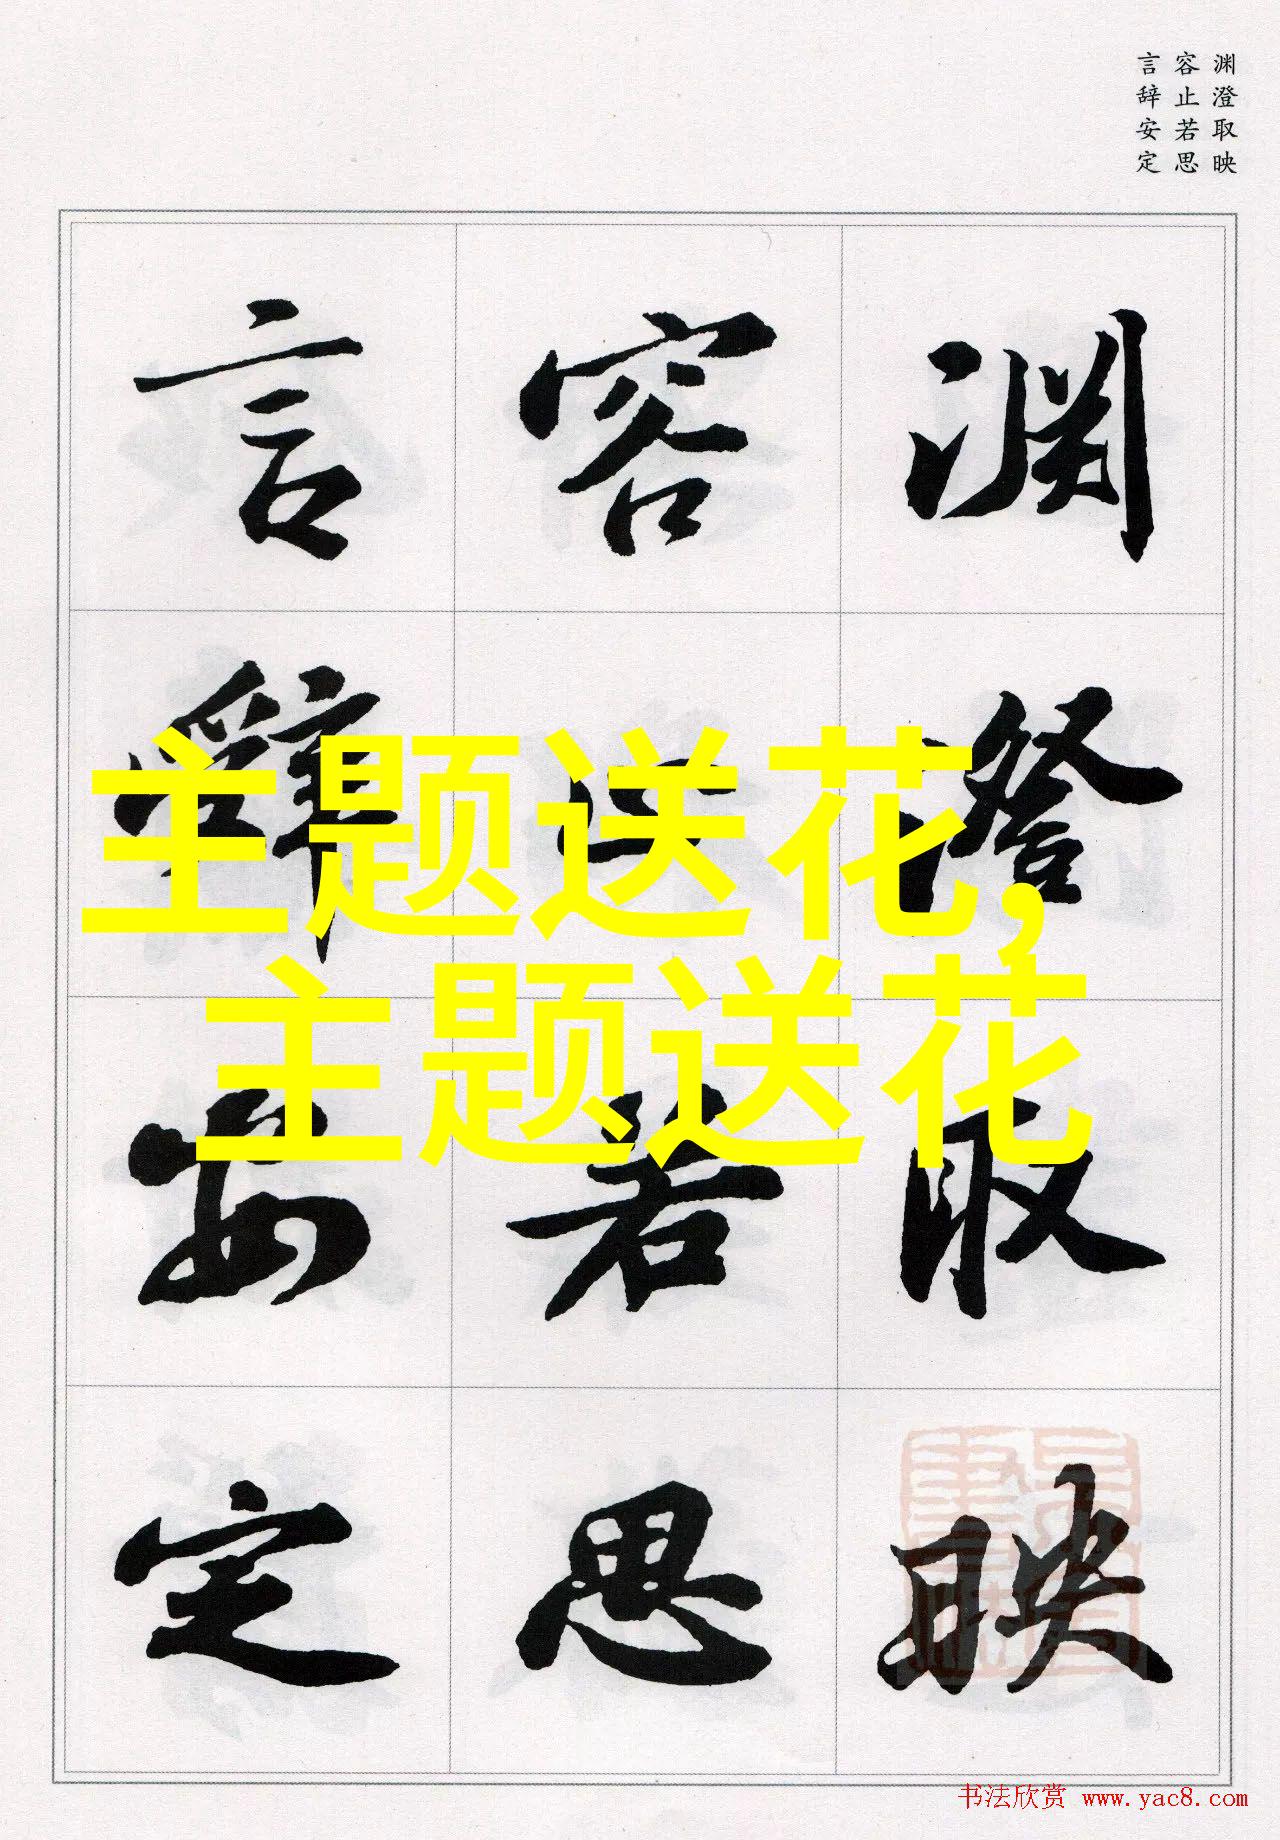 渊澄取映
容止若思
言辞安定
渊澄取映
容止若思
言辞安定
主题送花,
主题送花
书法欣赏 www.yac8.com